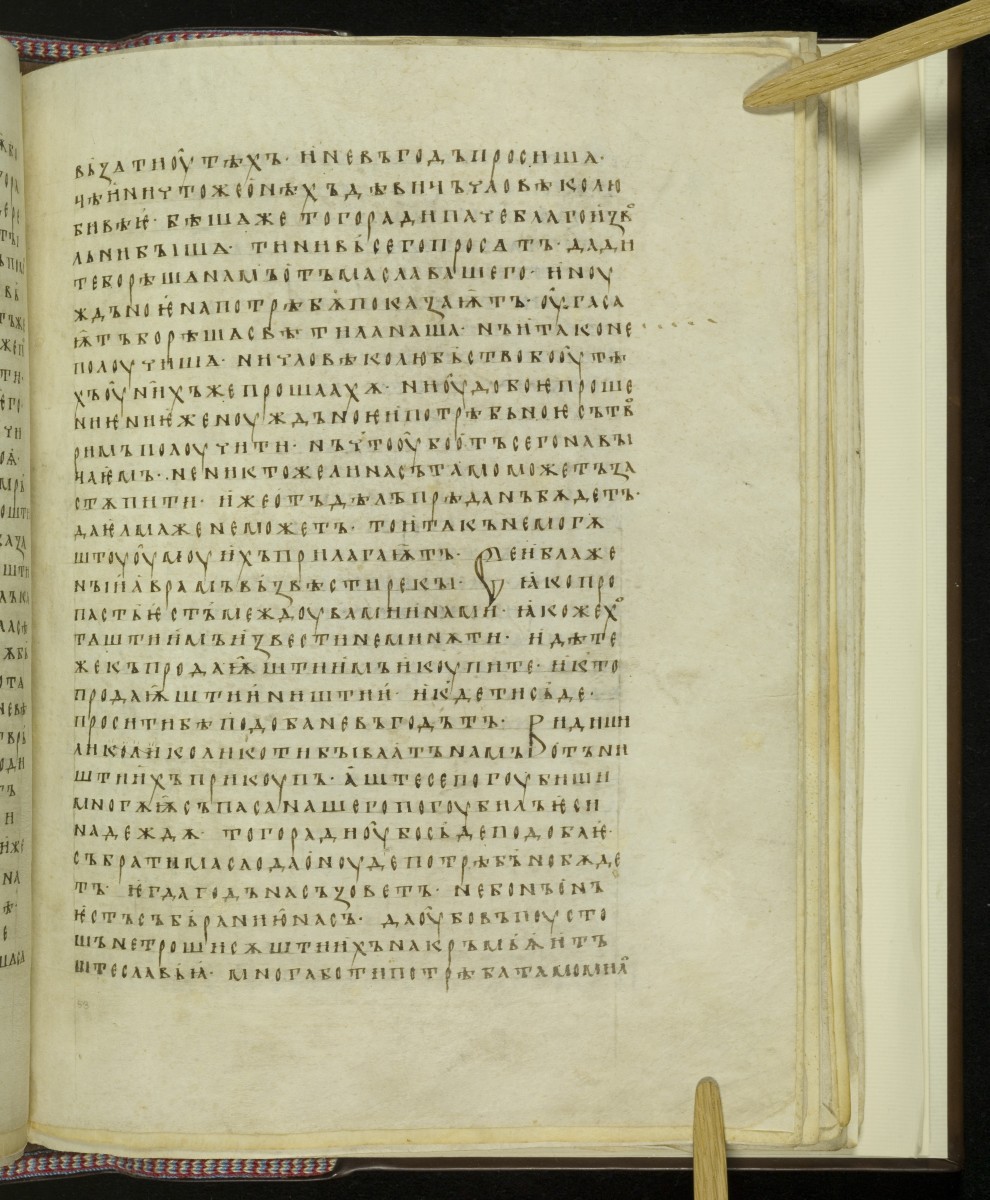 вьзати оу тѣхъ· и не въ годъ просиша·
чѣи ничтоже о нѣхъ дѣвичъ чловѣколю
бивѣи· бѣша же того ради паче благоизво
льни быша· ти ни вьсего просѧтъ· дади
те бо рѣшѧ намъ отъ масла вашего· и ноу
ждъное на потрѣбѫ показаѭтъ· оугаса
ѭтъ бо рѣшѧ свѣтила наша· нъ и тако не
полоучишѧ· ни чловѣколюбьство бо оу тѣ
хъ оу нихъже прошаахѫ· ни оудобое проше
ниѥ ниже ноуждъноѥ и потрѣбьноѥ сътво
римъ полоучити· нъ чьто оубо отъ сего навы
чаѥмъ· не никтоже ли насъ тамо можетъ за
стѫпити· иже отъ дѣлъ прѣданъ бѫдетъ·
да ѥлмаже не можетъ· то и такъ не могѫ
штоуоумоу ихъ прилагаѭтъ· Се и блаже
ныи аврамъ вьзвѣсти рекы· ꙗко про
пасть ѥстъ междоу вами и нами· ꙗкоже хо
таштиимъ извести не минѫти· идѣте
же къ продаѭштиимъ и коупите· и кто
продаѭштии ништии· и кꙿде ти сьде·
просити бѣ подоба не въ годъ тъ· Види ши
ли коли колико ти бываатъ намъ отъ ни
штиихъ прикоупъ· аште се погоубиши
многѫѭ съпаса нашего погоубилъ ѥси
надеждѫ· того ради оубо сьде подобаѥ
събрати масло да оноуде потрѣбьно бѫде
тъ· ѥгда годъ насъ зоветъ· не бо нъ онъ
ѥстъ събьраниѭ насъ· да оубо въпоусто
шъне трошисѫштиихъ на кръмьѫ и тъ
штеславьꙗ· многа бо ти потрѣба тамо мно